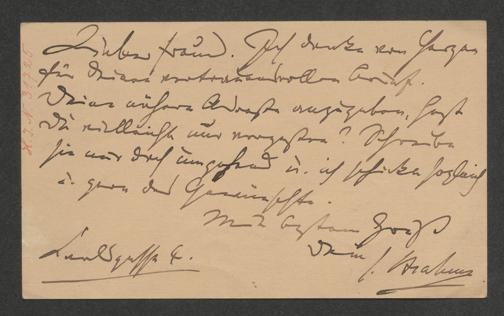 Lieber Freund. Ich danke von Herzen
für Deinen vertrauensvollen Brief.
Deine nähere Adresse anzugeben, hast
Du vielleicht nur vergessen? Schreibe
sie mir doch umgehend u. ich schicke sogleich
u. gern das Gewünschte.
Mit bestem Gruß
Dein J. Brahms
Karlsgasse 4.